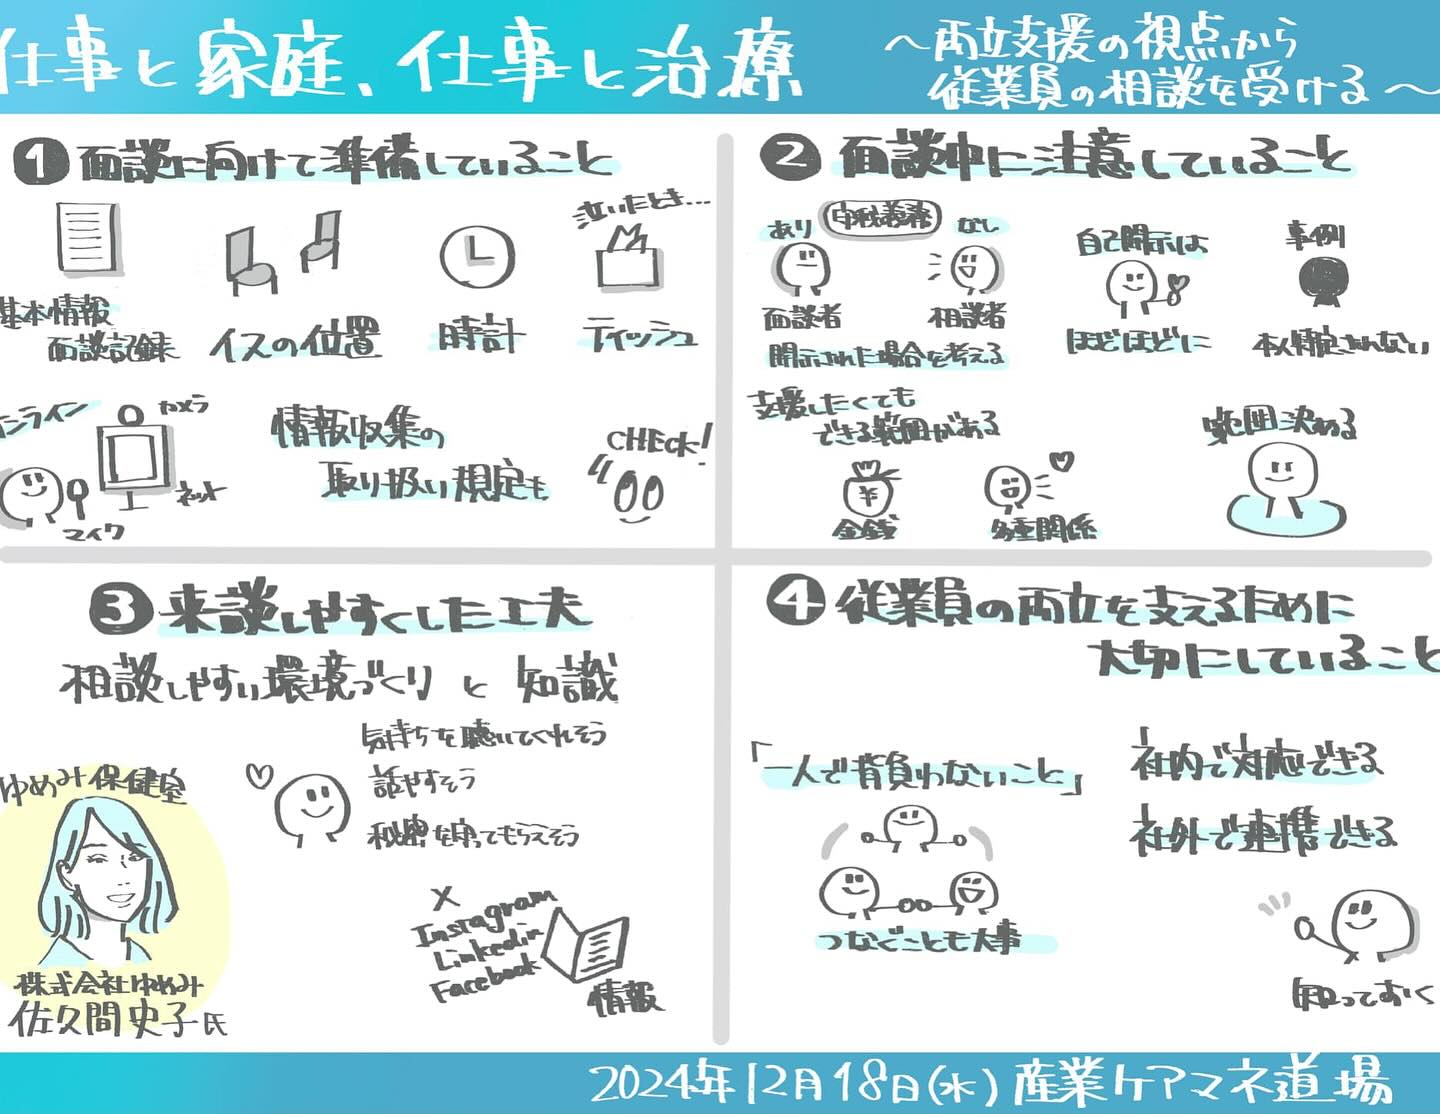 仕事と家庭、仕事と治療
～両立支援の視点から
従業員の相談を受ける～
❶面談に向けて準備していること
基本情報
面談記録
イスの位置
時計
泣いたとき...
ティッシュ
ンライン
カメラ
ネット
マイク
情報収集の
取り扱い規定も
CHECK!
❷面談中に注意していること
あり
守秘義務
なし
面談者
相談者
開示された場合を考える
自己開示は
ほどほどに
事例
本人特定されない
支援したくても
できる範囲がある
金銭
多重関係
範囲決める
❸来談しやすくした工夫
相談しやすい環境づくりと知識
気持ちを聴いてくれそう
話やすそう
秘密を守ってもらえそう
X
Instagram
Linkedin
Facebook
情報
ゆめみ保健室
株式会社ゆめみ
佐久間史子氏
❹従業員の両立を支えるために
大切にしていること
「一人で背負わないこと」
つなぐことも大事
社内で対応できる
社外で連携できる
知っておく
2024年12月18日(水)産業ケアマネ道場